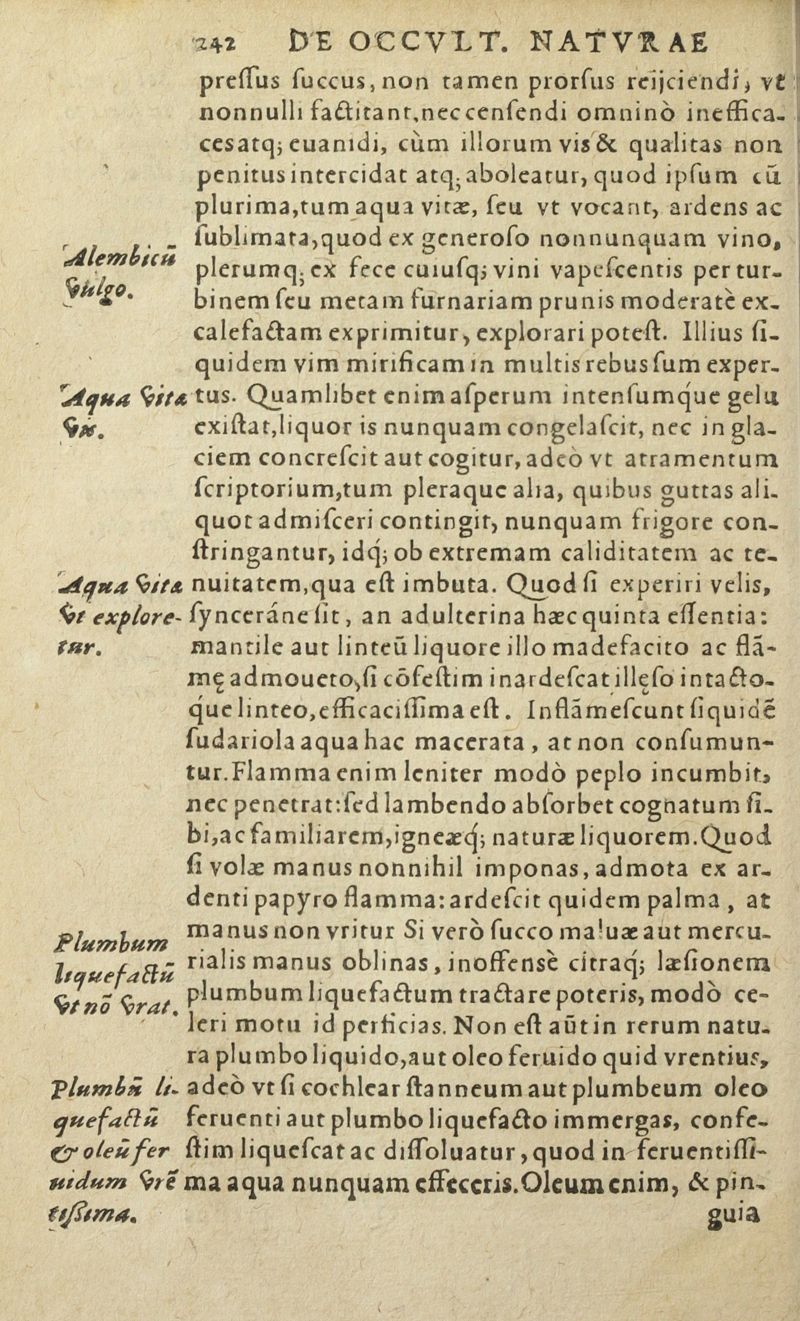 242 DE OCCVLT. NATVRAE
preſſus ſuccus, non tamen prorſus reijciendi, vt
nonnulli factitant, nec cenſendi omninò ineffica-
ces atq; euanidi, cùm illorum vis & qualitas non
penitus intercidat atq; aboleatur, quod ipſum cū
plurima, tum aqua vitæ, ſeu vt vocant, ardens ac
ſublimata, quod ex generoſo nonnunquam vino,
Alembicū
plerumq; ex fece cuiuſq; vini vapeſcentis per tur-
vulgo.
binem ſeu metam furnariam prunis moderatè ex-
calefactam exprimitur, explorari poteſt. Illius ſi-
quidem vim mirificam in multis rebus ſum exper-
Aqua vitæ tus. Quamlibet enim aſperum intenſumque gelu
vis. exiſtat, liquor is nunquam congelaſcit, nec in gla-
ciem concreſcit aut cogitur, adeò vt atramentum
ſcriptorium, tum pleraque alia, quibus guttas ali-
quot admiſceri contingit, nunquam frigore con-
ſtringantur, idq; ob extremam caliditatem ac te-
Aqua vitæ nuitatem, qua eſt imbuta. Quod ſi experiri velis,
vt explore- ſynceráne ſit, an adulterina hæc quinta eſſentia:
tur. mantile aut linteū liquore illo madefacito ac flā-
mę admoueto, ſi cōfeſtim inardeſcat illęſo intacto-
que linteo, efficaciſſima eſt. Inflāmeſcunt ſiquidē
ſudariola aqua hac macerata, at non conſumun-
tur. Flamma enim leniter modò peplo incumbit,
nec penetrat: ſed lambendo abſorbet cognatum ſi-
bi, ac familiarem, igneæq; naturæ liquorem. Quod
ſi volæ manus nonnihil imponas, admota ex ar-
denti papyro flamma: ardeſcit quidem palma, at
Plumbum manus non vritur Si verò ſucco maluæ aut mercu-
liquefactū rialis manus oblinas, inoffensè citraq; læſionem
vt nō vrat. plumbum liquefactum tractare poteris, modò ce-
leri motu id perficias. Non eſt aūt in rerum natu-
ra plumbo liquido, aut oleo feruido quid vrentius,
Plumbū li- adeò vt ſi cochlear ſtanneum aut plumbeum oleo
quefactū feruenti aut plumbo liquefacto immergas, confe-
& oleū fer ſtim liqueſcat ac diſſoluatur, quod in feruentiſſi-
uidum vrē ma aqua nunquam effeceris. Oleum enim, & pin-
tiſſima. guia